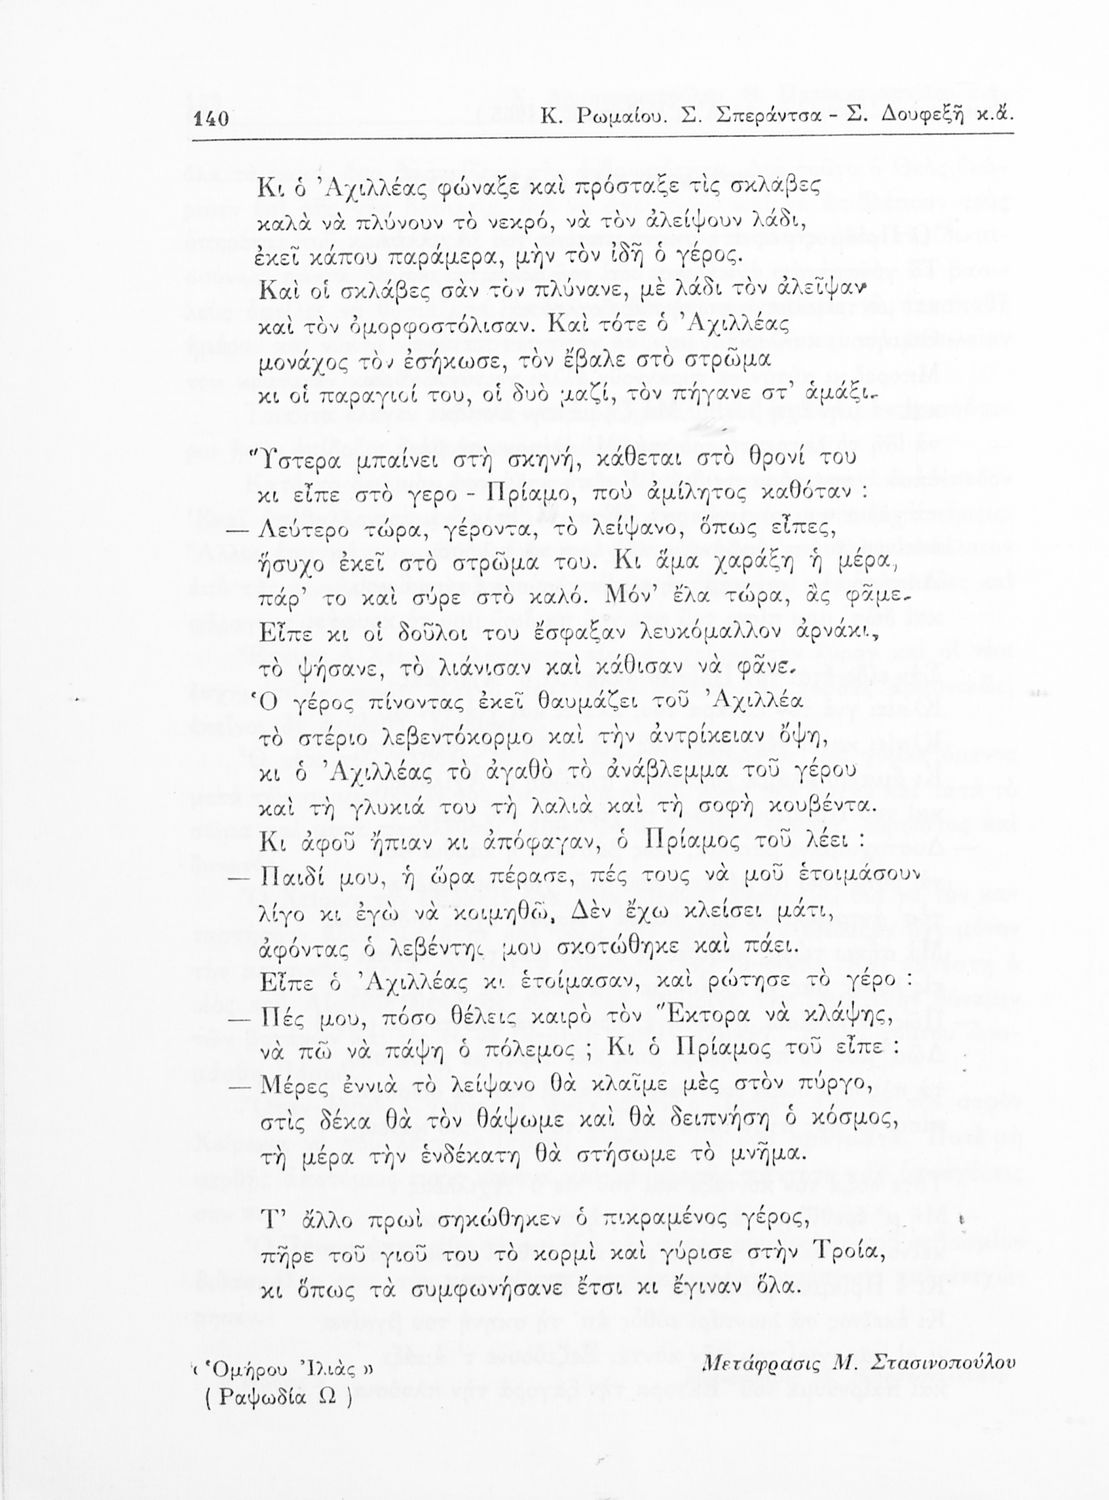 140 Κ. Ρωμαίου. Σ. Σπεράντσα - Σ. Δουφεξῆ κ.ἄ.
Κι ὁ Ἀχιλλέας φώναξε καὶ πρόσταξε τὶς σκλάβες
καλὰ νὰ πλύνουν τὸ νεκρό, νὰ τὸν ἀλείψουν λάδι,
ἐκεῖ κάπου παράμερα, μὴν τὸν ἰδῆ ὁ γέρος.
Καὶ οἱ σκλάβες σὰν τὸν πλύνανε, μὲ λάδι τὸν ἀλεῖψαν
καὶ τὸν ὀμορφοστόλισαν. Καὶ τότε ὁ Ἀχιλλέας
μονάχος τὸν ἐσήκωσε, τὸν ἔβαλε στὸ στρῶμα
κι οἱ παραγιοί του, οἱ δυὸ μαζί, τὸν πήγανε στ' ἁμάξι.
Ὕστερα μπαίνει στὴ σκηνή, κάθεται στὸ θρονί του
κι εἶπε στὸ γερο - Πρίαμο, ποὺ ἀμίλητος καθόταν :
— Λεύτερο τώρα, γέροντα, τὸ λείψανο, ὅπως εἶπες,
ἥσυχο ἐκεῖ στὸ στρῶμα του. Κι ἅμα χαράξη ἡ μέρα,
πάρ' το καὶ σύρε στὸ καλό. Μόν' ἔλα τώρα, ἂς φᾶμε.
Εἶπε κι οἱ δοῦλοι του ἔσφαξαν λευκόμαλλον ἀρνάκι,
τὸ ψήσανε, τὸ λιάνισαν καὶ κάθισαν νὰ φᾶνε.
Ὁ γέρος πίνοντας ἐκεῖ θαυμάζει τοῦ Ἀχιλλέα
τὸ στέριο λεβεντόκορμο καὶ τὴν ἀντρίκειαν ὄψη,
κι ὁ Ἀχιλλέας τὸ ἀγαθὸ τὸ ἀνάβλεμμα τοῦ γέρου
καὶ τὴ γλυκιά του τὴ λαλιὰ καὶ τὴ σοφὴ κουβέντα.
Κι ἀφοῦ ἤπιαν κι ἀπόφαγαν, ὁ Πρίαμος τοῦ λέει :
— Παιδί μου, ἡ ὥρα πέρασε, πές τους νὰ μοῦ ἑτοιμάσουν
λίγο κι ἐγὼ νὰ κοιμηθῶ, Δὲν ἔχω κλείσει μάτι,
ἀφόντας ὁ λεβέντης μου σκοτώθηκε καὶ πάει.
Εἶπε ὁ Ἀχιλλέας κι ἑτοίμασαν, καὶ ρώτησε τὸ γέρο :
— Πές μου, πόσο θέλεις καιρὸ τὸν Ἕκτορα νὰ κλάψης,
νὰ πῶ νὰ πάψη ὁ πόλεμος ; Κι ὁ Πρίαμος τοῦ εἶπε :
— Μέρες ἐννιὰ τὸ λείψανο θὰ κλαῖμε μὲς στὸν πύργο,
στὶς δέκα θὰ τὸν θάψωμε καὶ θὰ δειπνήση ὁ κόσμος,
τὴ μέρα τὴν ἑνδέκατη θὰ στήσωμε τὸ μνῆμα.
Τ' ἄλλο πρωὶ σηκώθηκεν ὁ πικραμένος γέρος,
πῆρε τοῦ γιοῦ του τὸ κορμὶ καὶ γύρισε στὴν Τροία,
κι ὅπως τὰ συμφωνήσανε ἔτσι κι ἔγιναν ὅλα.
« Ὁμήρου Ἰλιὰς » Μετάφρασις Μ. Στασινοπούλου
( Ραψωδία Ω )